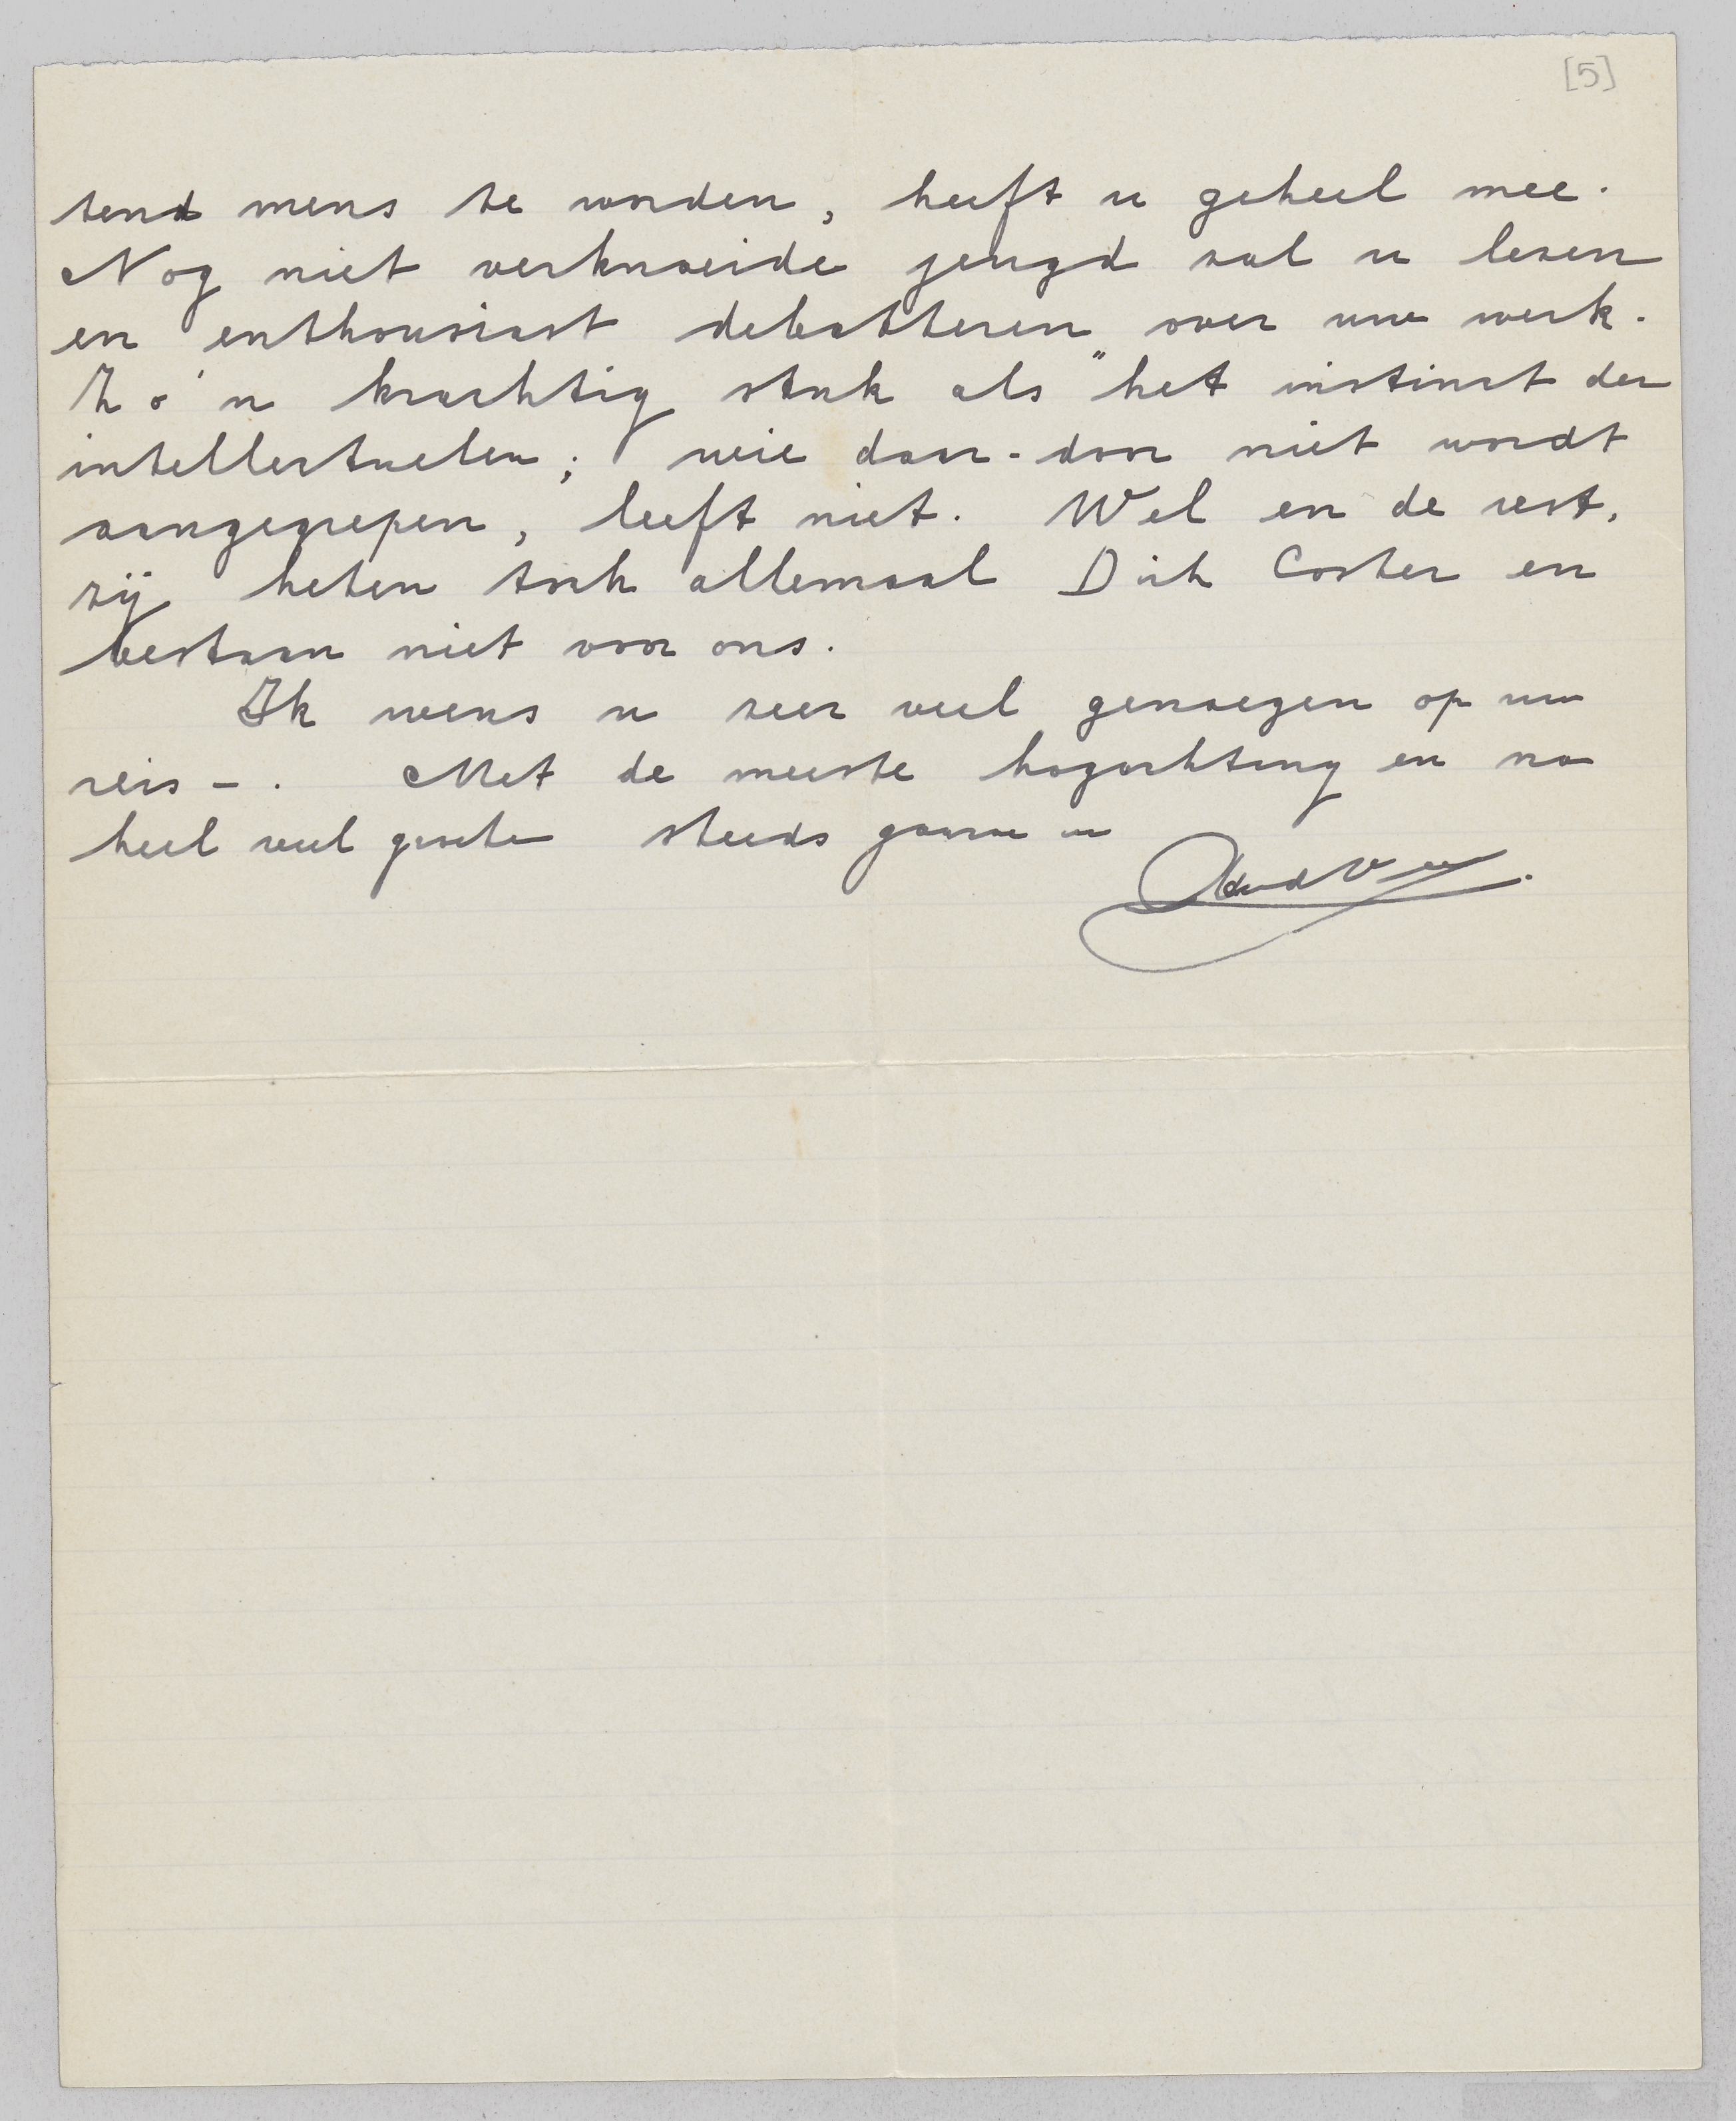 [5]
tend mens te worden, heeft u geheel mee.
Nog niet verknoeide jeugd zal u lezen
en enthousiast debatteren over uw werk.
Zo'n krachtig stuk als "het instinct der
intellectuelen; wie daar-door niet wordt
aangegrepen, leeft niet. Wel en de rest,
zij heten toch allemaal Dirk Coster en
bestaan niet voor ons.
Ik wens u zeer veel genoegen op uw
reis -. Met de meeste hogachting en na
heel veel groeten steeds gaarne uw